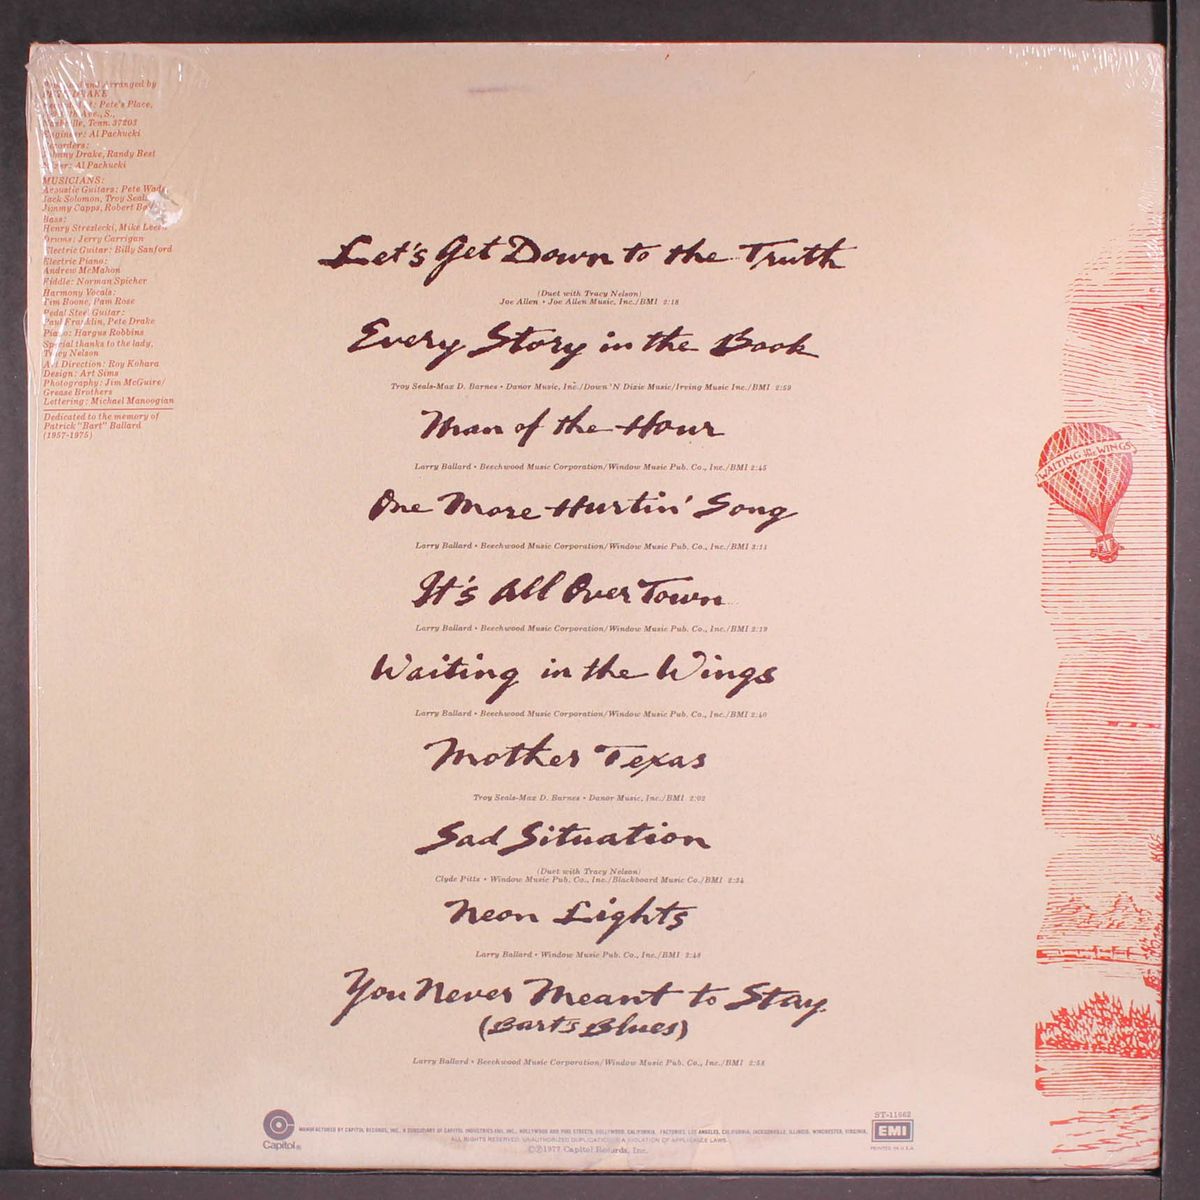 and Arranged by
DRAKE
Pete's Place,
Ave., S.,
Nashville, Tenn. 37203
Engineer: Al Pachucki
Recorders:
Johnny Drake, Randy Best
Mixer: Al Pachucki
MUSICIANS:
Acoustic Guitars: Pete Wade,
Jack Solomon, Troy Seals,
Jimmy Capps, Robert
Bass:
Henry Strezlecki, Mike
Drums: Jerry Carrigan
Electric Guitar: Billy Sanford
Electric Piano:
Andrew McMahon
Fiddle: Norman Spicher
Harmony Vocals:
Tim Boone, Pam Rose
Pedal Steel Guitar:
Paul Franklin, Pete Drake
Piano: Hargus Robbins
Special thanks to the lady,
Tracy Nelson
Art Direction: Roy Kohara
Design: Art Sims
Photography: Jim McGuire/
Grease Brothers
Lettering: Michael Manoogian
Dedicated to the memory of
Patrick "Bart" Ballard
(1957-1975)
Let's Get Down to the Truth
(Duet with Tracy Nelson)
Joe Allen • Joe Allen Music, Inc./BMI 2:18
Every Story in the Book
Troy Seals-Max D. Barnes • Danor Music, Inc./Down 'N Dixie Music/Irving Music Inc./BMI 2:59
Man of the Hour
Larry Ballard • Beechwood Music Corporation/Window Music Pub. Co., Inc./BMI 2:45
One More Hurtin' Song
Larry Ballard • Beechwood Music Corporation/Window Music Pub. Co., Inc./BMI 3:11
It's All Over Town
Larry Ballard • Beechwood Music Corporation/Window Music Pub. Co., Inc./BMI 2:19
Waiting in the Wings
Larry Ballard • Beechwood Music Corporation/Window Music Pub. Co., Inc./BMI 2:40
Mother Texas
Troy Seals-Max D. Barnes • Danor Music, Inc./BMI 2:02
Sad Situation
(Duet with Tracy Nelson)
Clyde Pitts • Window Music Pub. Co., Inc./Blackboard Music Co./BMI 2:34
Neon Lights
Larry Ballard • Window Music Pub. Co., Inc./BMI 2:48
You Never Meant to Stay
(Bart's Blues)
Larry Ballard • Beechwood Music Corporation/Window Music Pub. Co., Inc./BMI 2:58
WAITING IN THE WINGS
Capitol®
MANUFACTURED BY CAPITOL RECORDS, INC., A SUBSIDIARY OF CAPITOL INDUSTRIES-EMI, INC., HOLLYWOOD AND VINE STREETS, HOLLYWOOD, CALIFORNIA. FACTORIES: LOS ANGELES, CALIFORNIA, JACKSONVILLE, ILLINOIS, WINCHESTER, VIRGINIA.
ALL RIGHTS RESERVED. UNAUTHORIZED DUPLICATION IS A VIOLATION OF APPLICABLE LAWS.
©Ⓟ1977 Capitol Records, Inc.
ST-11662
EMI
PRINTED IN U.S.A.